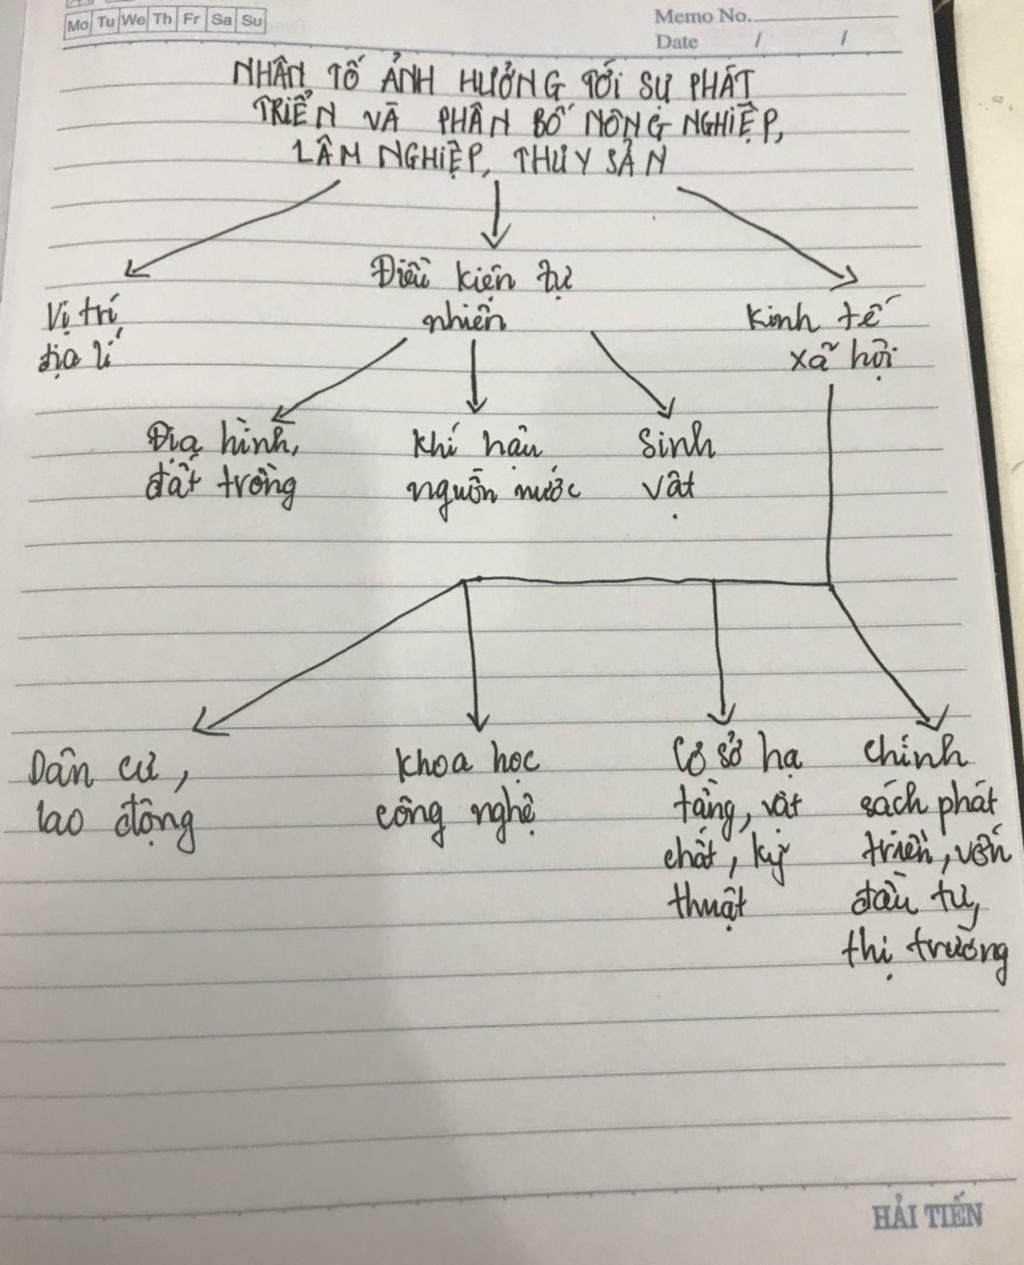 Mo Tu We Th Fr Sa Su
Memo No.
Date / /
NHÂN TỐ ẢNH HƯỞNG TỚI SỰ PHÁT
TRIỂN VÀ PHÂN BỐ NÔNG NGHIỆP,
LÂM NGHIỆP, THUỶ SẢN
Vị trí
địa lí
Điều kiện tự
nhiên
Kinh tế
xã hội
Địa hình,
đất trồng
Khí hậu
nguồn nước
Sinh
vật
Dân cư,
lao động
Khoa học
công nghệ
Cơ sở hạ
tầng, vật
chất, kỹ
thuật
Chính
sách phát
triển, vốn
đầu tư,
thị trường
HẢI TIẾN